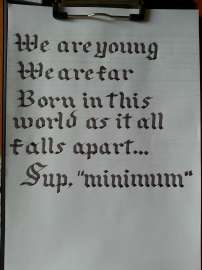 We are young
We are far
Born in this
world as it all
falls apart...
Sup. "minimum"